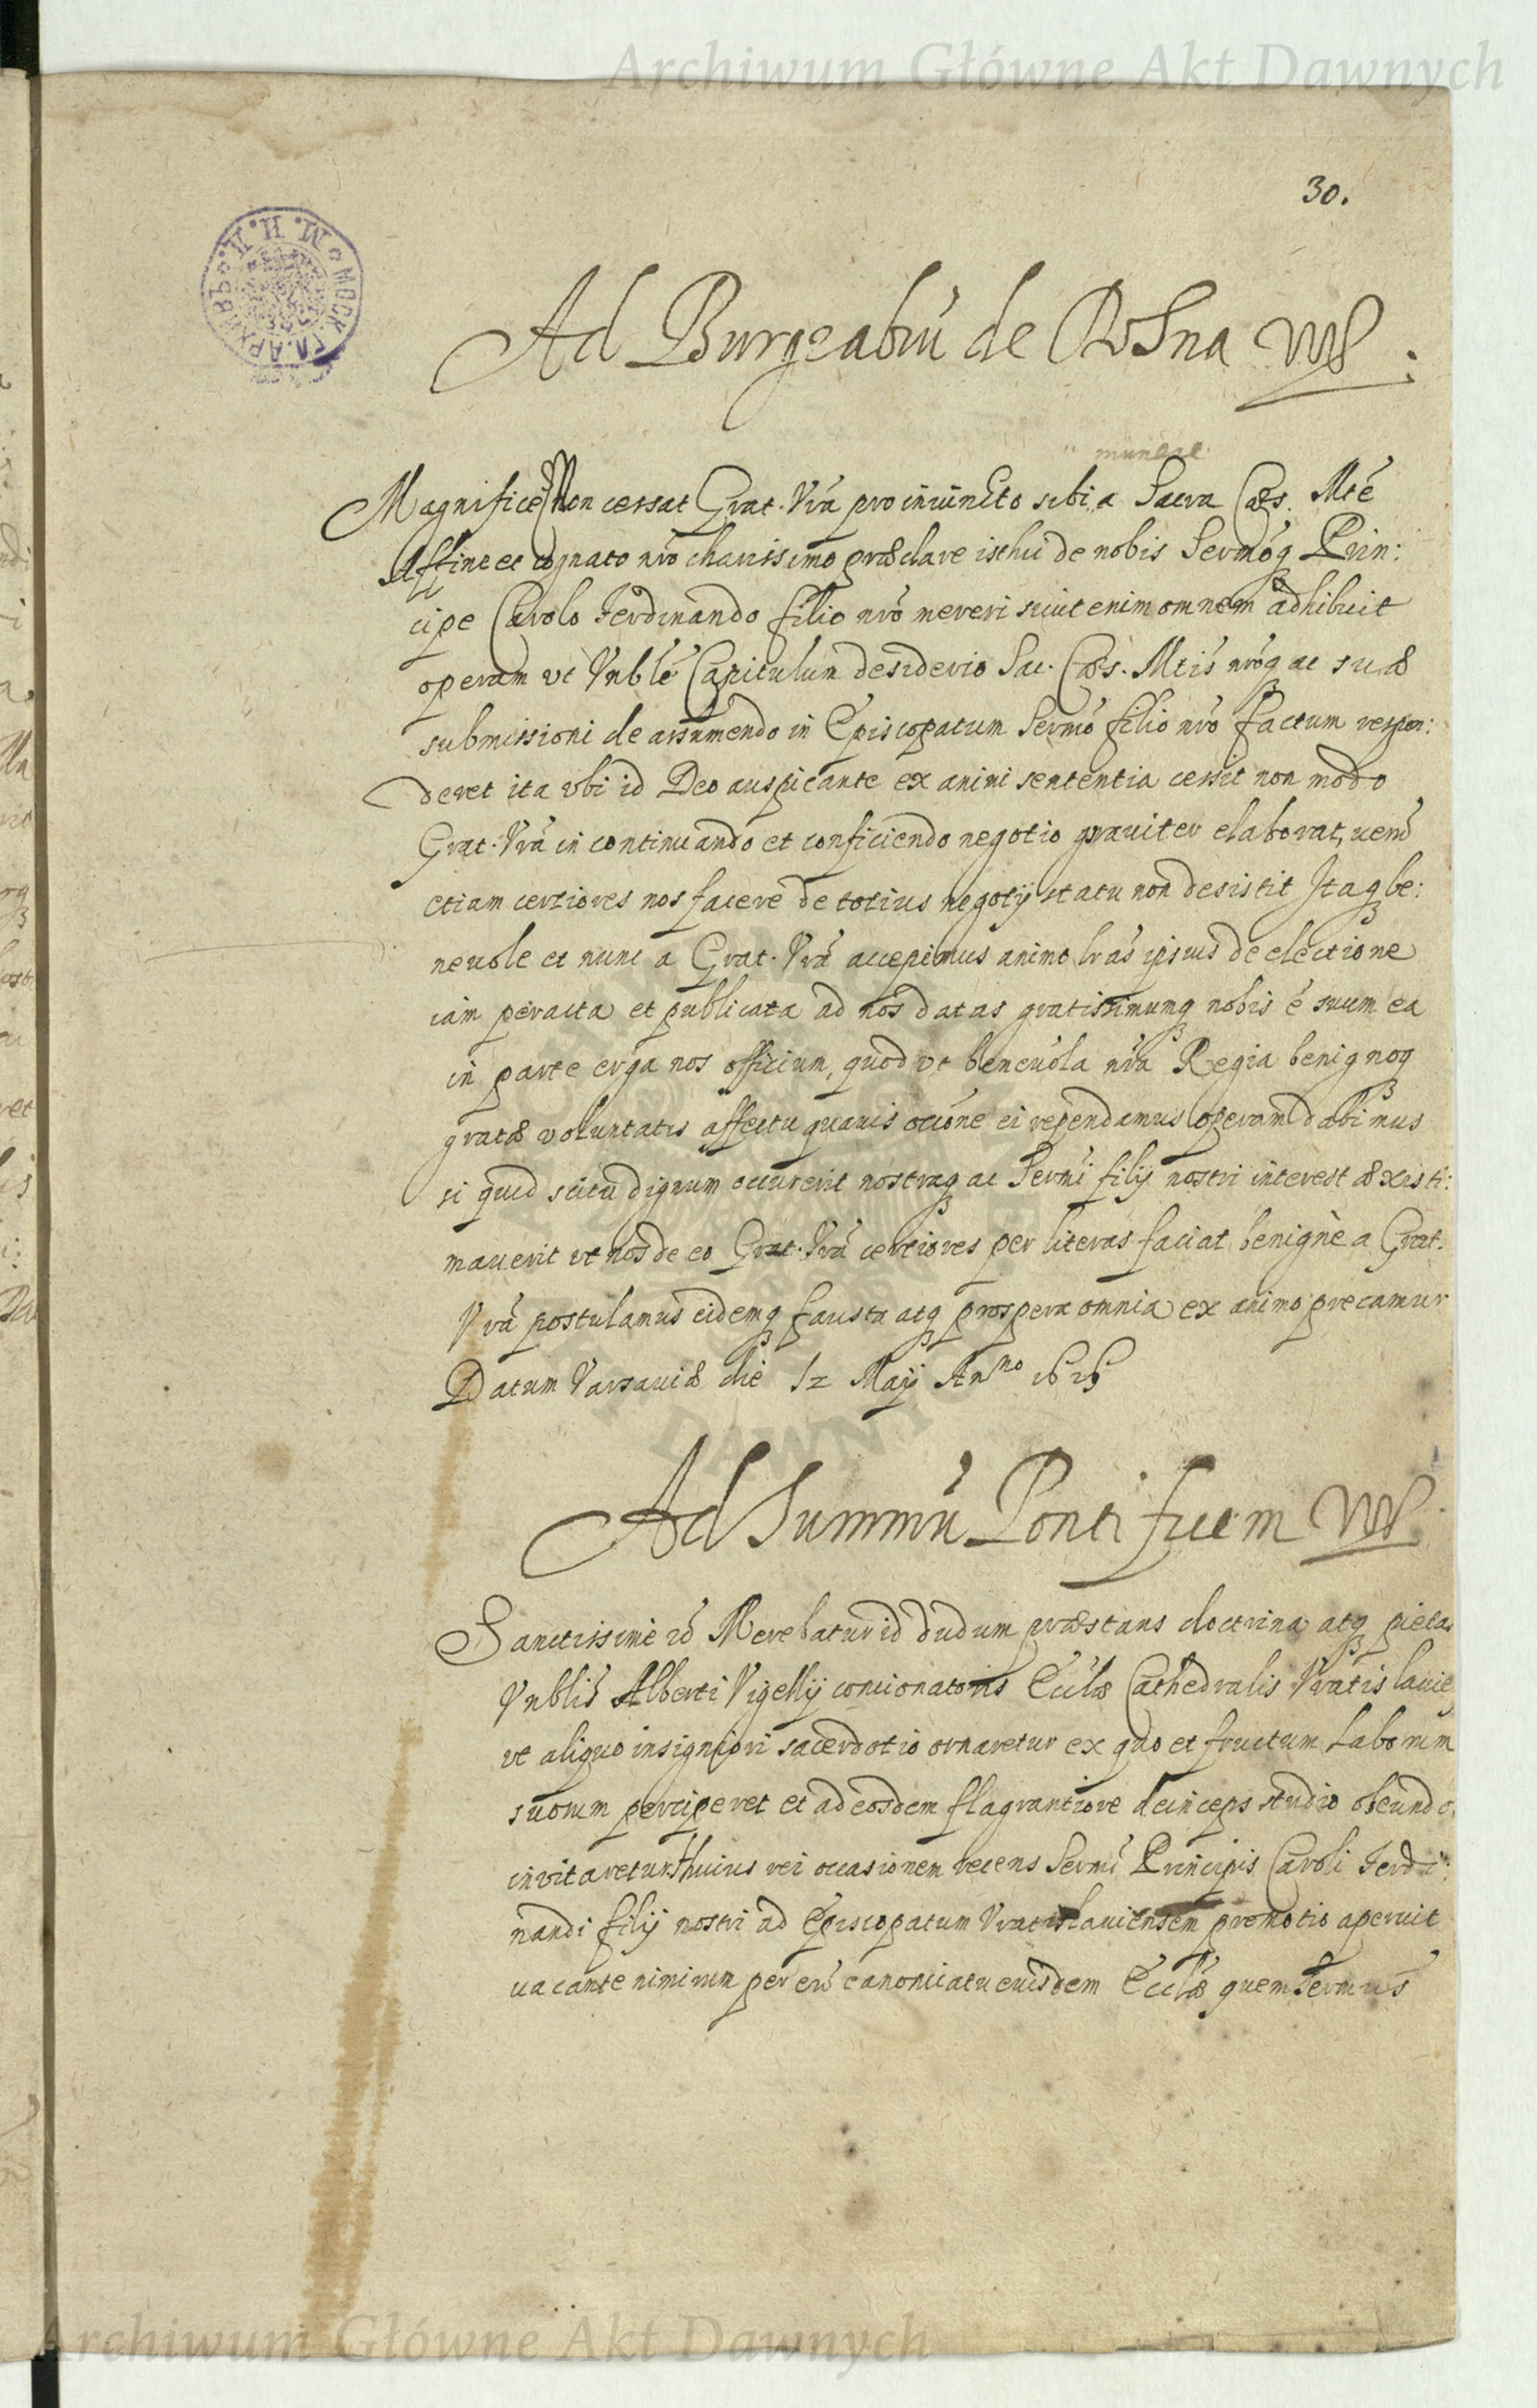 Archiwum Główne Akt Dawnych
30.
Ad Burgrabiũ de Rosna
munere
Magnifice Non cessat Grat. Vrã pro iniuncto sibi a Sacra Cæs. Mtẽ
Affine et cognato nrõ charissimo præclare isthic de nobis Sermõq Prin:
cipe Carolo Ferdinando filio nrõ mereri sicut enim omnem adhibuit
operam vt Vnblẽ Capitulum desiderio Sac. Cæs. Mtis nrõq ac suæ
submissioni de assumendo in Episcopatum Sermõ filio nrõ factum respon:
deret ita vbi id Deo auspicante ex animi sententia cessit non modo
Grat. Vrã in continuando et conficiendo negotio grauiter elaborat, uerũ
etiam certiores nos facere de totius negotij statu non desistit Itaq be:
neuole et nunc a Grat. Vrã accepimus animo lrãs ipsius de electione
iam peracta et publicata ad nos datas gratissimumq nobis ẽ suum ea
in parte erga nos officium, quod vt beneuola nrã Regia benignoq
gratæ voluntatis affectu quauis occõne ei rependamus operam dabimus
si quid scitu dignum occurerit nostraq ac Sermĩ filij nostri interest æxisti:
mauerit vt nos de eo Grat. Vrã certiores per literas faciat benignè a Grat.
Vrã postulamus eidemq fausta atq prospera omnia ex animo precamur
Datum Varsauiæ die 12 Maij Anno 1625
Ad Summũ Pontificem
Sanctissime Merebatur id dudum præstans doctrina atq pietas
Vnblis Alberti Vigelij concionatoris Eccłæ Cathedralis Vratislauie
vt aliquo insigniori sacerdotio ornaretur ex quo et fructum Laborum
suorum perciperet et ad eosdem flagrantiore deinceps studio obeundo
invitaretur huius rei occasionem recens Sermĩ Principis Caroli Ferdi:
nandi filij nostri ad Episcopatum Vratislauiensem promotio aperuit
uacante nimirum per eũ canonicatu eiusdem Eccłæ quem Sermus
Archiwum Główne Akt Dawnych